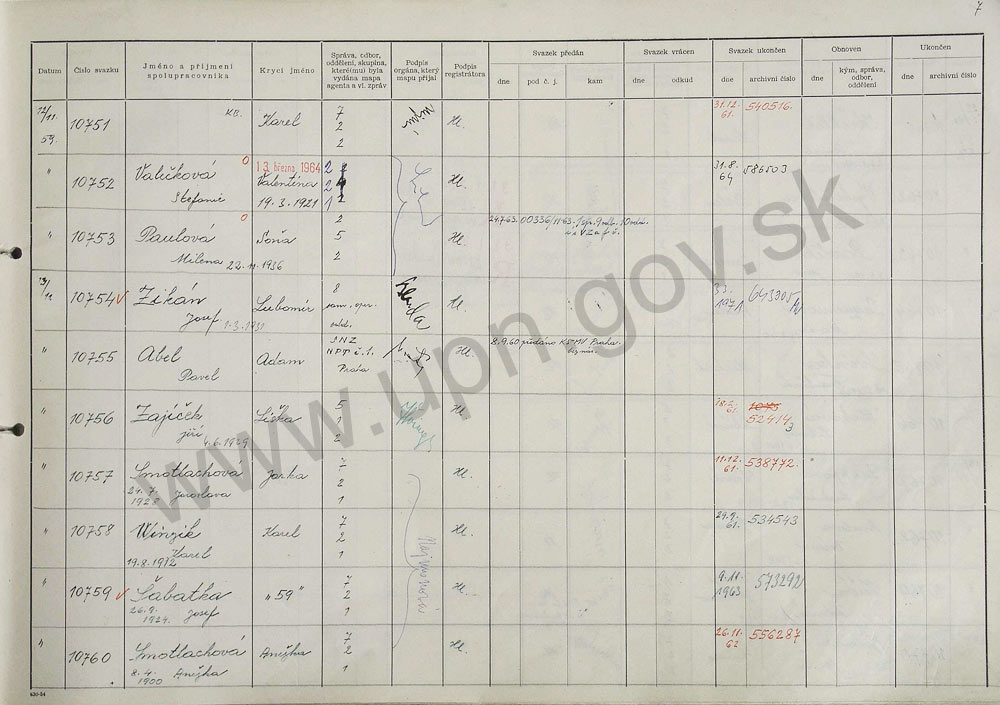 7
Datum
Číslo svazku
Jméno a příjmení spolupracovníka
Krycí jméno
Správa, odbor, oddělení, skupina, které(mu) byla vydána mapa agenta a vl. zpráv
Podpis orgána, který mapu přijal
Podpis registrátora
Svazek předán
dne
pod č. j.
kam
Svazek vrácen
dne
odkud
Svazek ukončen
dne
archivní číslo
Obnoven
dne
kým, správa, odbor, oddělení
Ukončen
dne
archivní číslo
12/11. 59. 10751 KB. Karel 7 2 2 Hl. 31.12. 61. 540516.
" 10752 Valečková 0 13. března 1964
Štefanie Valentina 19.3.1921 2 2 1 Hl. 31.8. 64 586503
" 10753 Paulová 0 Soňa 2 5 2 Hl. 29.7.63. 00336/11-63.
Milena 22.11.1936
10754 Zikán Lubomír 8 Hl. 1971
Josef 1.3.1931
" 10755 Abel Adam SNZ NPT č.1. Praha Hl. 8.9.60 předáno KS-MV Praha.
Pavel
" 10756 Zajíček Liška 5 1 2 Hl. 61. 1075 52414 3
Jiří 4.6.1929
" 10757 Smotlachová Jarka 7 2 1 Hl. 11.12. 61. 538772.
24.7. 1928 Jaroslava
" 10758 Winzik Karel 7 2 1 Hl. 29.9. 61. 534543
Karel
19.8.1912
" 10759 Šabatka „59" 7 2 1 Hl. 9.11. 1963 573292
26.9. 1924. Josef
" 10760 Smotlachová Anežka 7 2 1 Hl. 26.11. 62 556287
8.4. 1900 Anežka
630-54
www.upn.gov.sk